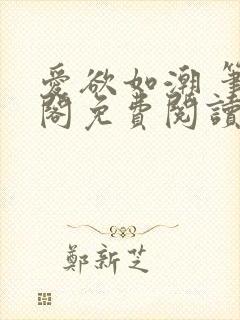 愛欲如潮 筆
閣免費閱讀
鄭新芝